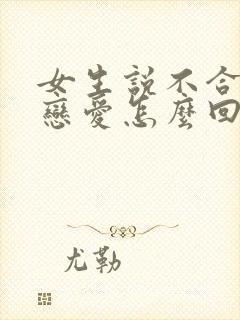 女生説不合
戀愛怎麼回
尤勒